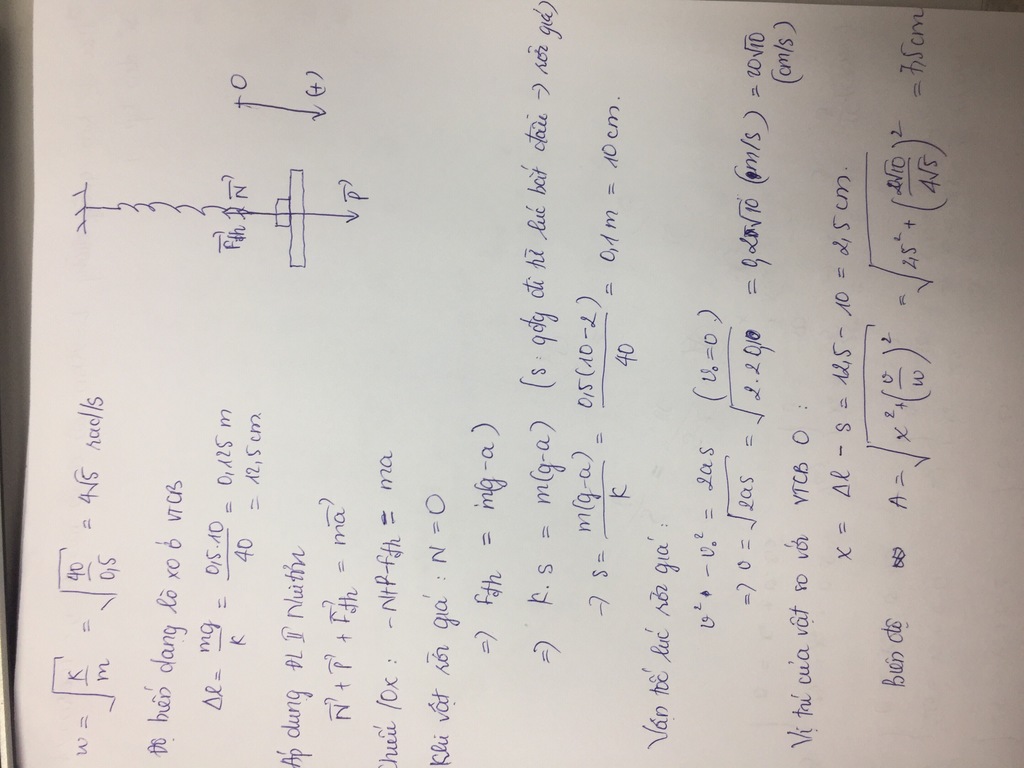 ω = √(k/m) = √(40/0,5) = 4√5 rad/s
Độ biến dạng lò xo ở VTCB
Δl = mg/k = 0,5.10/40 = 0,125 m
= 12,5 cm.
F⃗đh N⃗
O
(+)
P⃗
Áp dụng ĐL II Niutơn
N⃗ + P⃗ + F⃗đh = ma⃗
Chiếu /Ox : -N+P-Fđh = ma
Khi vật rời giá : N = 0
=> Fđh = m(g-a)
=> K.s = m(g-a) (s: qđg đi từ lúc bắt đầu -> rời giá)
-> s = m(g-a)/K = 0,5(10-2)/40 = 0,1 m = 10 cm.
Vận tốc lúc rời giá :
v² - v₀² = 2as (v₀=0.)
=> v = √(2as) = √(2.2.0,10) = 0,2√10 (m/s) = 20√10
(cm/s)
Vị trí của vật so với VTCB O :
x = Δl - s = 12,5 - 10 = 2,5 cm.
Biên độ A = √(x²+(v/ω)²) = √(2,5² + (20√10/4√5)²) = 7,5 cm